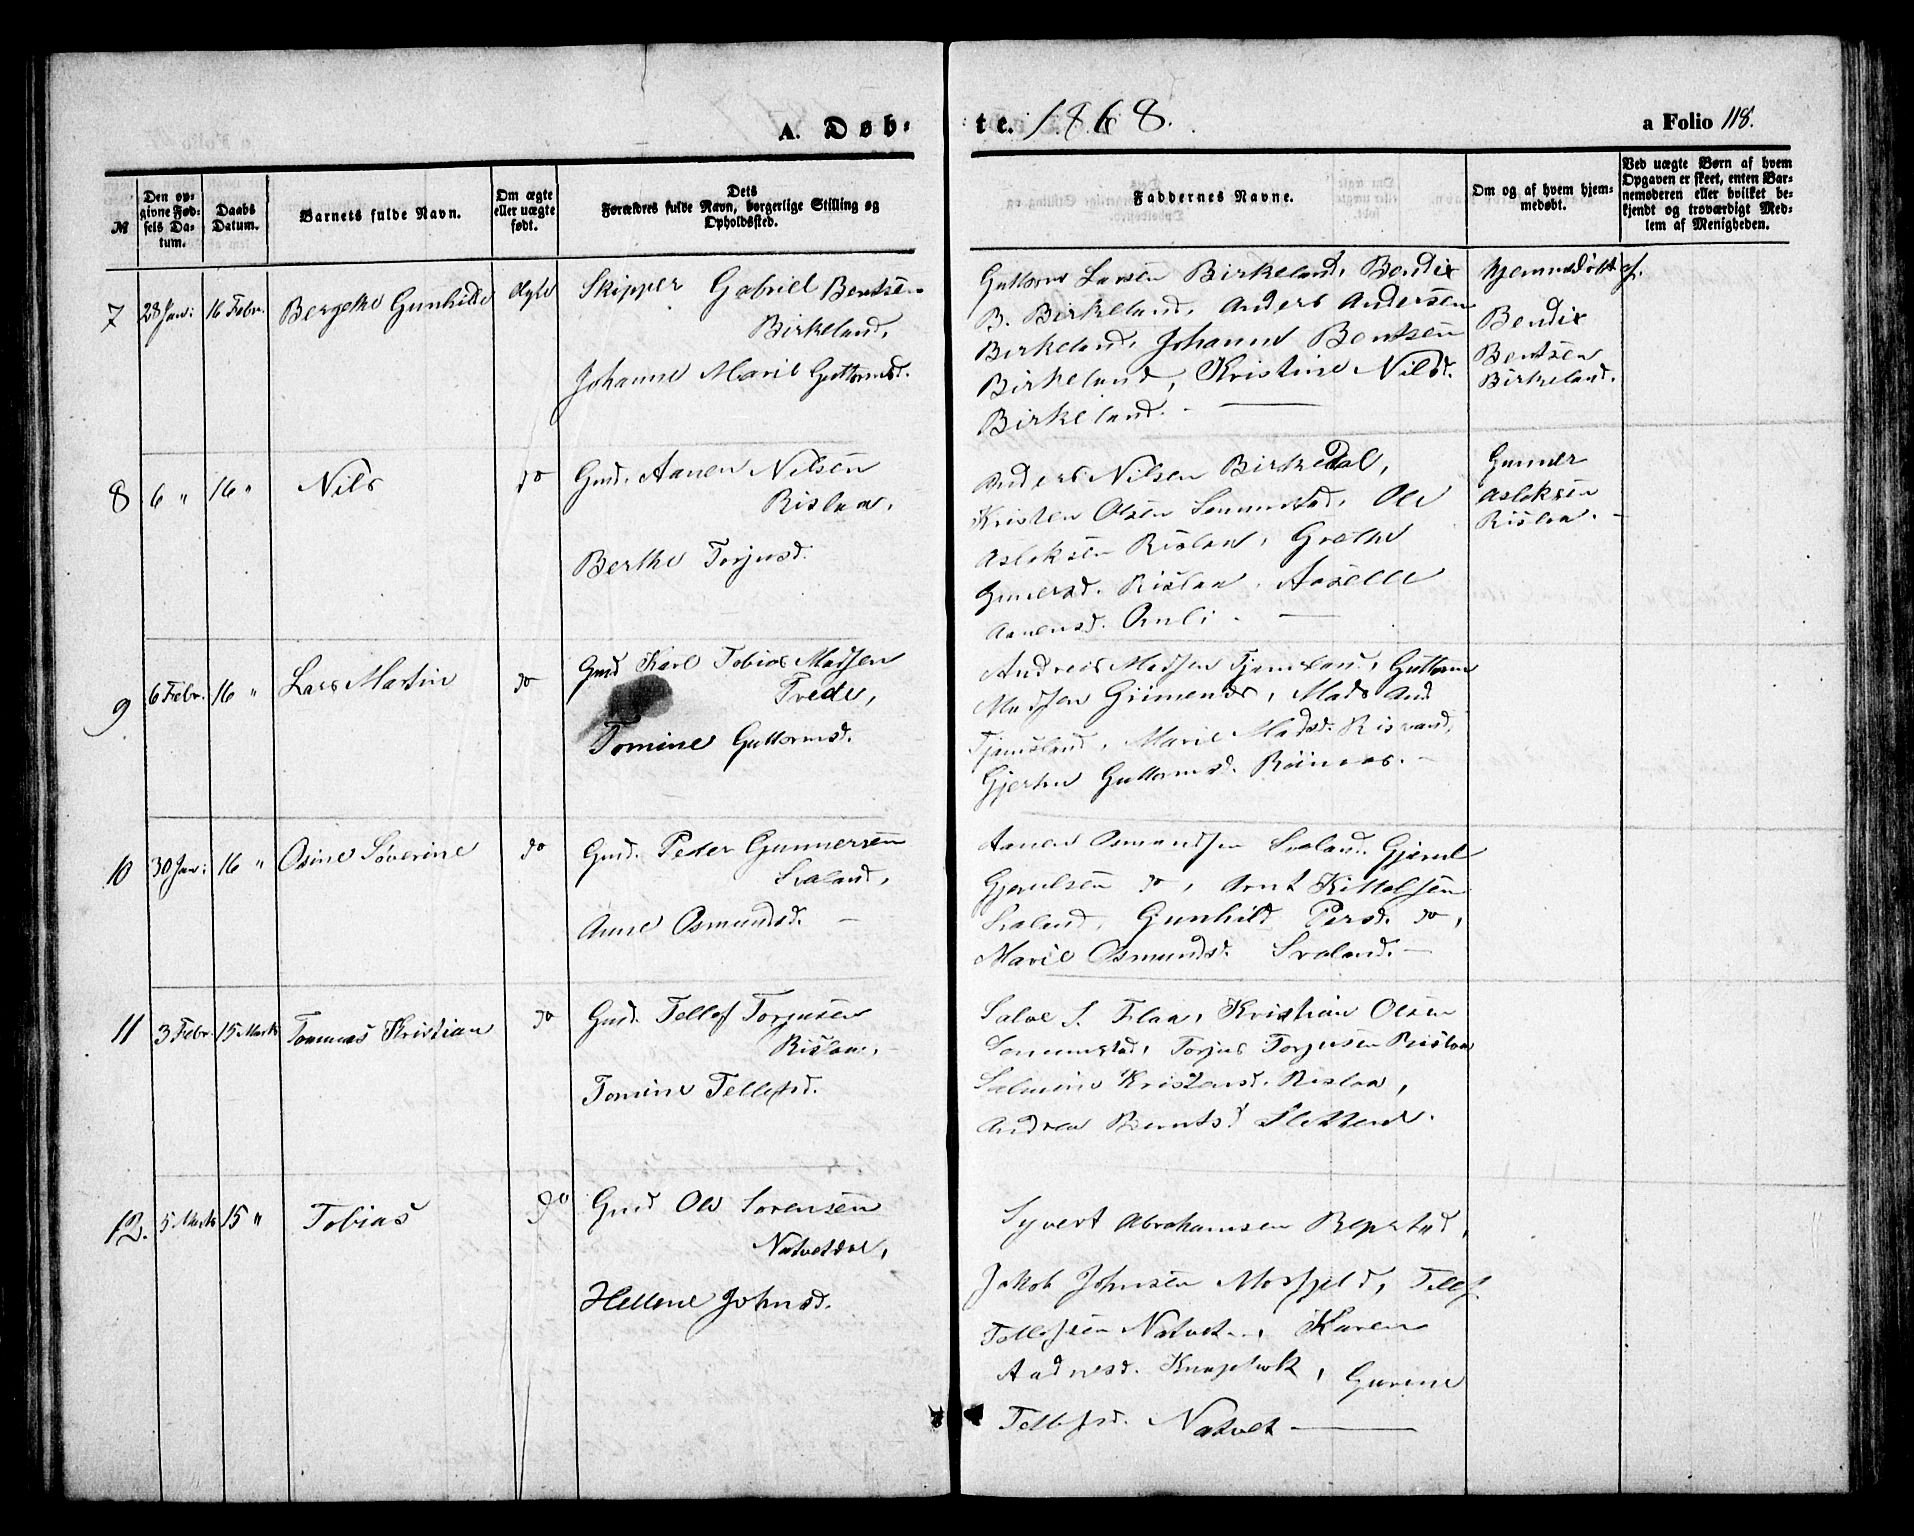 A. Døb-
te. 1868.
a Folio 118.
№
Den opgivne Fødsels Datum.
Daabs Datum.
Barnets fulde Navn.
Om ægte eller uægte født.
Dets Forældres fulde Navn, borgerlige Stilling og Opholdssted.
Faddernes Navne.
Om og af hvem hjemmedøbt.
Ved uægte Børn af hvem Opgaven er skeet, enten Barnemoderen eller hvilket bekjendt og troværdigt Medlem af Menigheden.
7
28 Jan:
16 Febr.
Bergethe Gunhilde
ægte
Skipper Gabriel Bentsen
Birkeland,
Johanne Marie Guttormsd.
Guttorm Larsen Birkeland, Bendix
B. Birkeland, Anders Andersen
Birkeland, Johanne Bentsen
Birkeland, Kristine Nilsd.
Birkeland. -
hjemmedøbt af.
Bendix
Bentsen
Birkeland.
8
6 "
16 "
Nils
do
Gmd. Aanen Nilsen
Rislaa,
Berthe Torjusd.
Anders Nilsen Birkedal,
Kristen Olsen Lommstad, Ole
Aslaksen Rislaa, Grethe
Gunersd. Rislaa, Aaselle
Aanensd. Anli -
Gunner
Aslaksen
Rislaa. -
9
6 Febr.
16 "
Lars Martin
do
Gmd Karl Tobias Madsen
Trede,
Tomine Guttormsd.
Andreas Madsen Tjomsland, Guttorm
Madsen Grimenes, Mads And
Tjomsland, Marie Madsd. Risvand,
Gjertru Guttormsd. Röinaas. -
10
30 Jan:
16 "
Osine Söverine
do
Gmd. Peder Gunnersen
Svaland,
Anne Osmundsd. -
Aanen Osmundsen Svaland, Gjerul
Gjerulsen do, Arnt Kittelsen
Svaland, Gunhild Persd. do,
Marie Osmundsd. Svaland. -
11
3 Febr.
15 Marts
Tommas Kristian
do
Gmd. Tellef Torjusen
Rislaa, -
Tomine Tellefsd.
Salve S. Flaa, Kristian Olsen
Lommstad, Torjus Torjusen Rislaa
Salmine Kristensd. Rislaa,
Andrea Berntsd Slettene.
12.
5 Marts
15 "
Tobias
do
Gmd Ole Sorensen
Natvetdal,
Hellene Johnsd.
Syvert Abrahamsen Repstad,
Jakob Johnsen Mosfjeld, Tellef
Tellefsen Natvet, Karen
Aadnesd. Knapholt, Gurine
Tellefsd. Natvet